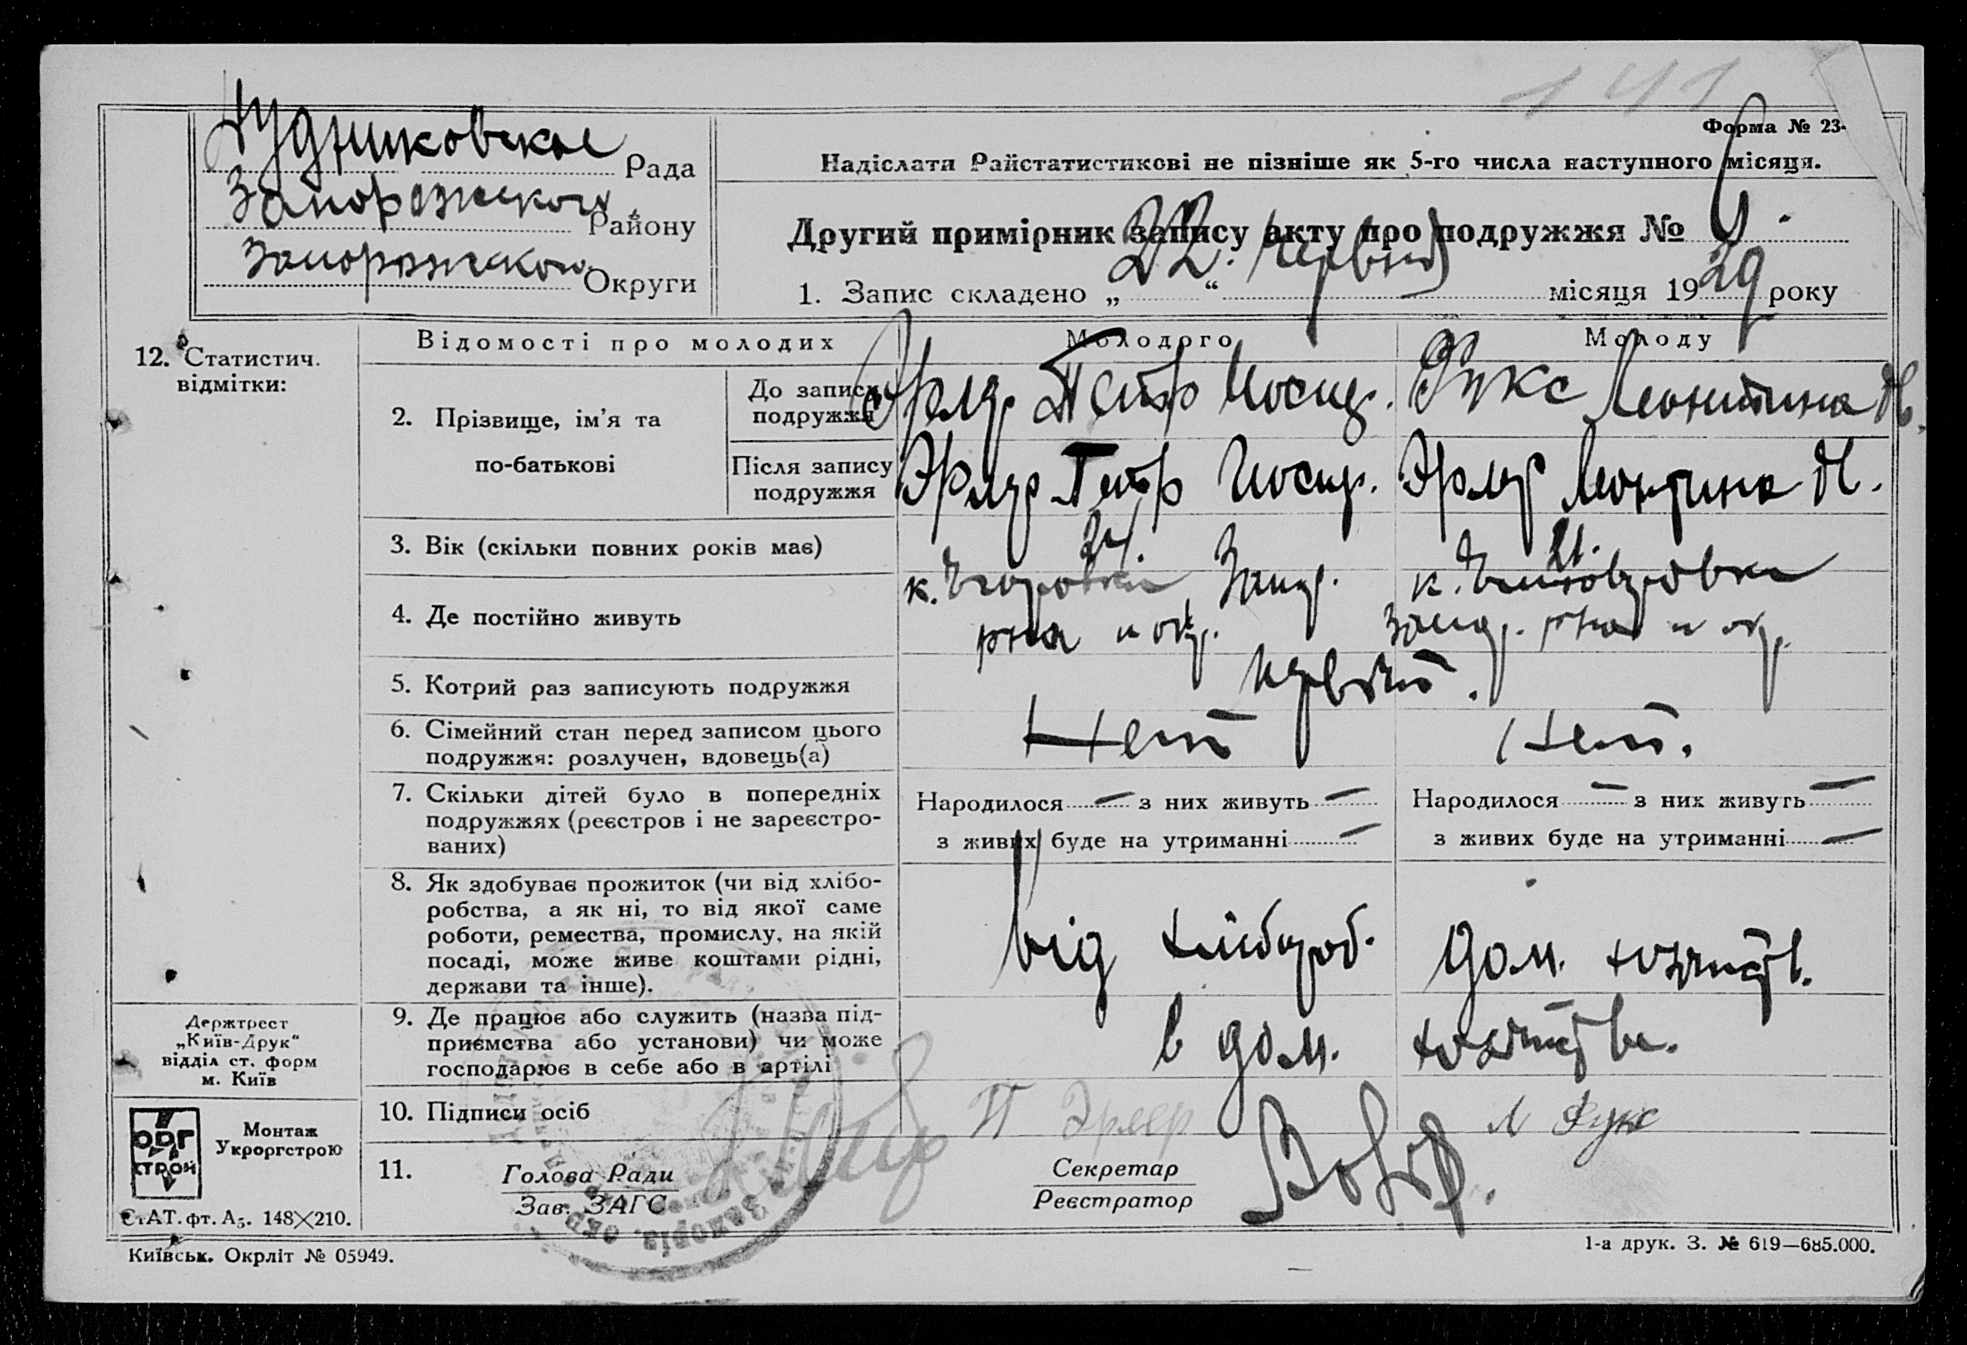 141
Форма № 23-
Рада
Запорожского Району
Запорожского Округи
Надіслати Райстатистикові не пізніше як 5-го числа наступного місяця.
Другий примірник запису акту про подружжя № 6.
1. Запис складено „22“ червня місяця 1929 року
12. Статистич.
відмітки:
Відомості про молодих
Молодого
Молоду
2. Прізвище, ім’я та
по-батькові
До запису
подружжя
Петр Иосиф.
Фукс Леонтина
Після запису
подружжя
Петр Иосиф.
Леонтина
3. Вік (скільки повних років має)
24.
21.
4. Де постійно живуть
к. Егоровка Запор.
рна и окр.
к.
Запор. рна и окр.
5. Котрий раз записують подружжя
первый.
6. Сімейний стан перед записом цього
подружжя: розлучен, вдовець(а)
Нет
Нет.
7. Скільки дітей було в попередніх
подружжях (реєстров і не зареєстро-
ваних)
Народилося — з них живуть —
з живих буде на утриманні —
Народилося — з них живуть —
з живих буде на утриманні —
8. Як здобуває прожиток (чи від хлібо-
робства, а як ні, то від якої саме
роботи, ремества, промислу, на якій
посаді, може живе коштами рідні,
держави та інше).
від хлібороб.
дом. хозяйств.
9. Де працює або служить (назва під-
приємства або установи) чи може
господарює в себе або в артілі
в дом. хозяйстве.
10. Підписи осіб
П
Л Фукс
11.
Голова Ради
Зав. ЗАГС
Секретар
Реєстратор
Держтрест
„Київ-Друк“
відділ ст. форм
м. Київ
ОРГ
СТРОЙ
Монтаж
Укроргстрою
СтАТ. фт. А5. 148×210.
Київськ. Окрліт № 05949.
1-а друк. З. № 619—685.000.